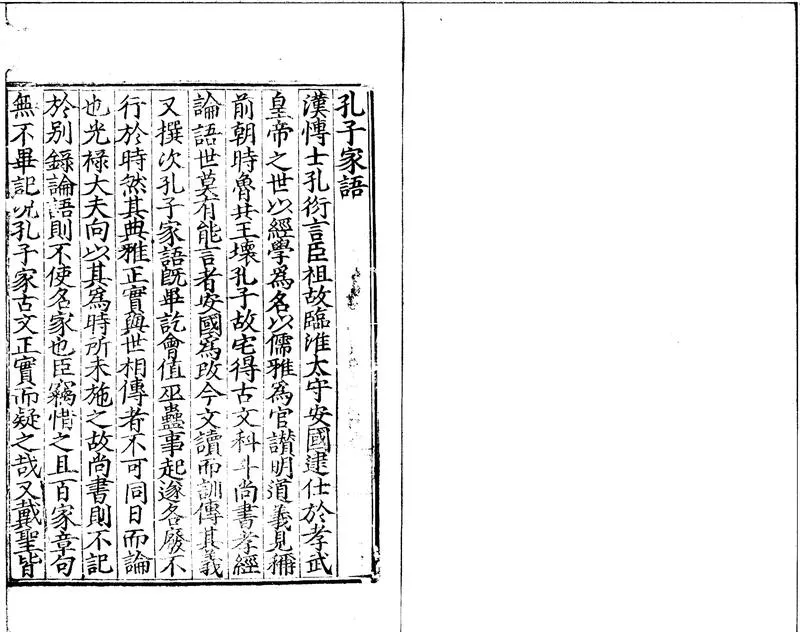 孔子家語
漢博士孔衍言臣祖故臨淮太守安國逮仕於孝武
皇帝之世以經學為名以儒雅為官讃明道義見稱
前朝時魯共王壞孔子故宅得古文科斗尚書孝經
論語世莫有能言者安國為攷今文讀而訓傳其義
又撰次孔子家語旣畢訖會值巫蠱事起遂各廢不
行於時然其典雅正實與世相傳者不可同日而論
也光禄大夫向以其為時所未施之故尚書則不記
於别錄論語則不使名家也臣竊惜之且百家章句
無不畢記况孔子家古文正實而疑之哉又戴聖皆